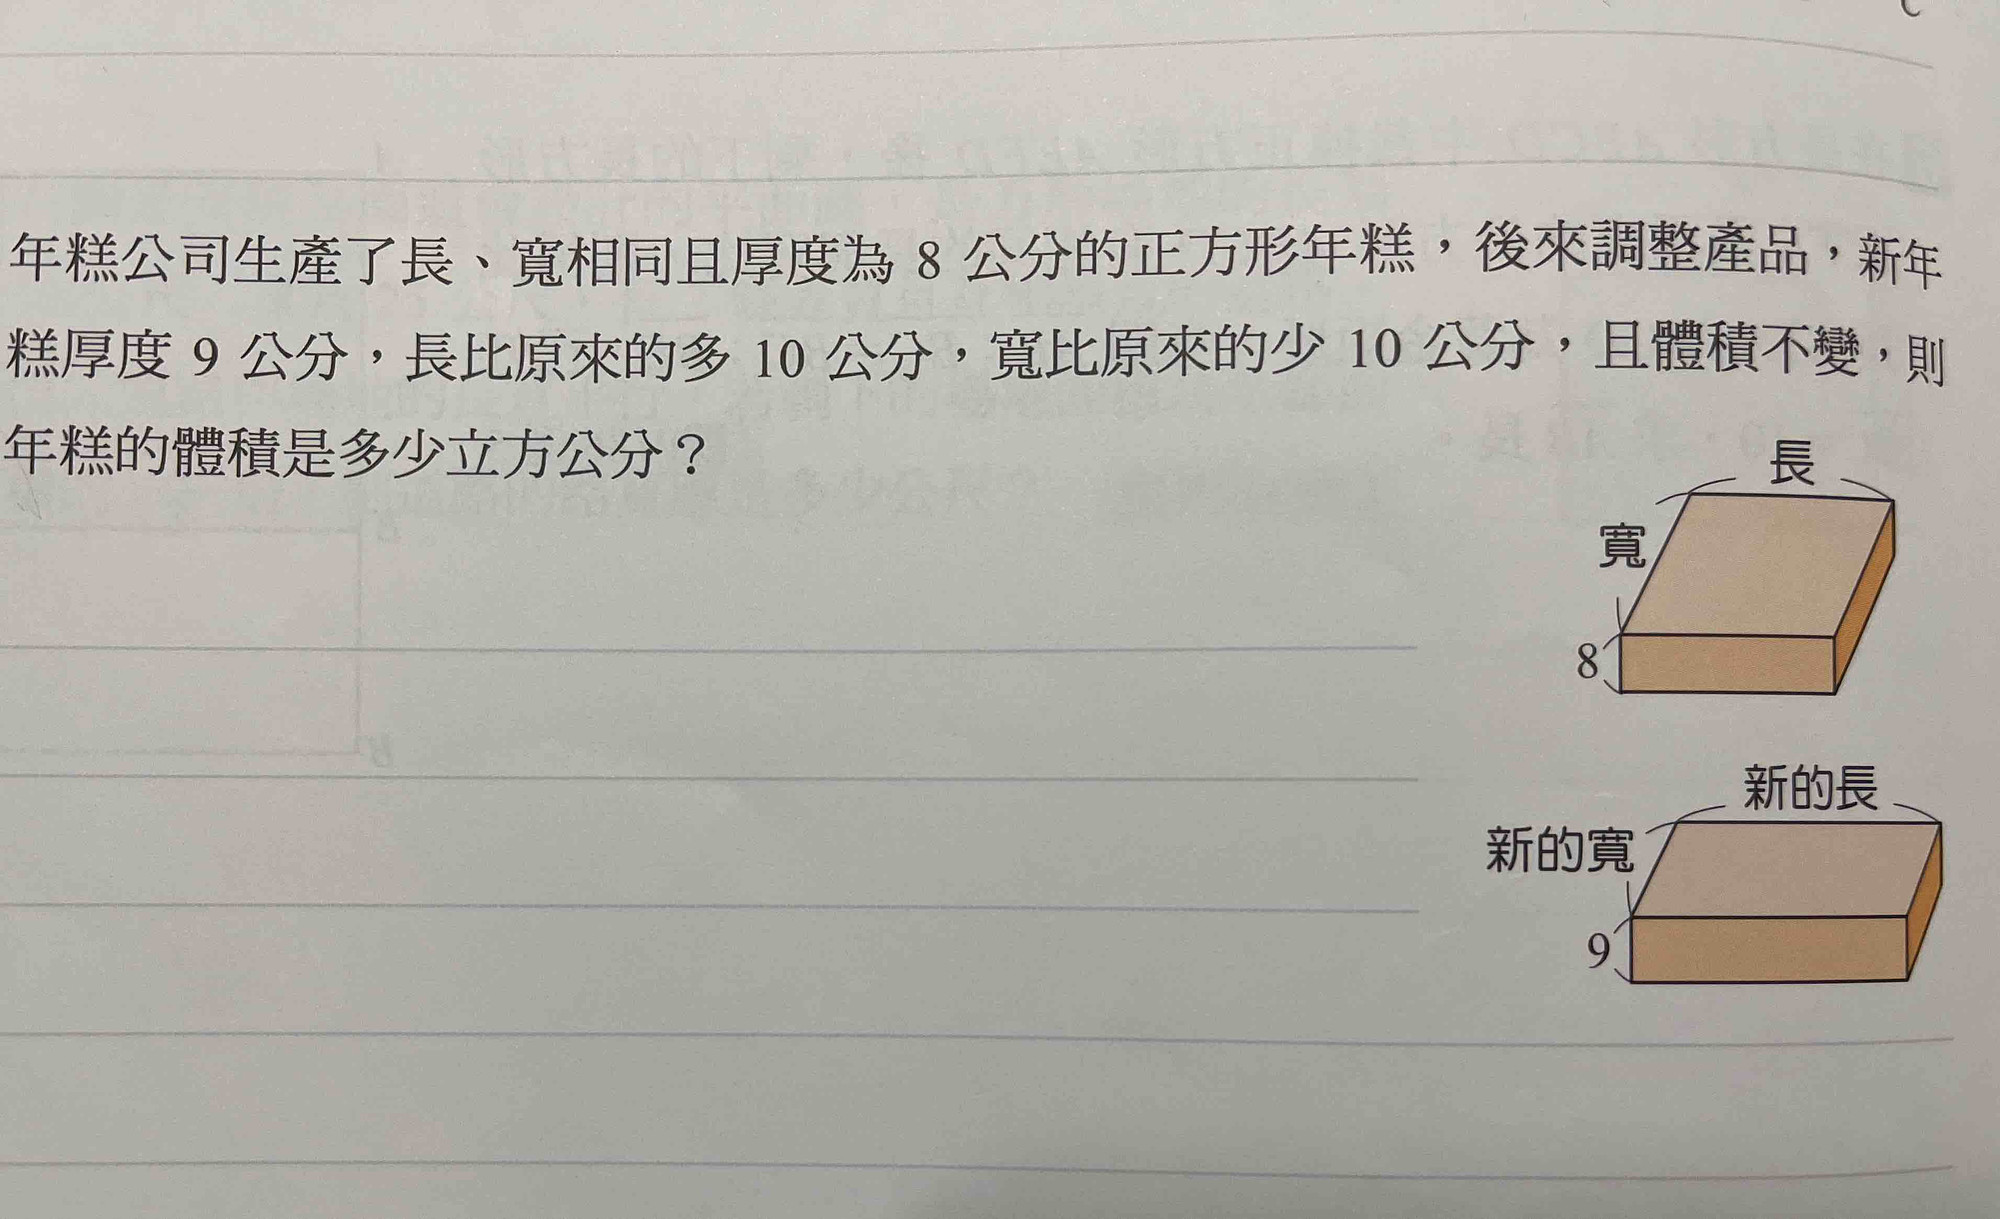 年糕公司生產了長、寬相同且厚度為 8 公分的正方形年糕，後來調整產品，新年
糕厚度 9 公分，長比原來的多 10 公分，寬比原來的少 10 公分，且體積不變，則
年糕的體積是多少立方公分？
長
寬
8
新的長
新的寬
9